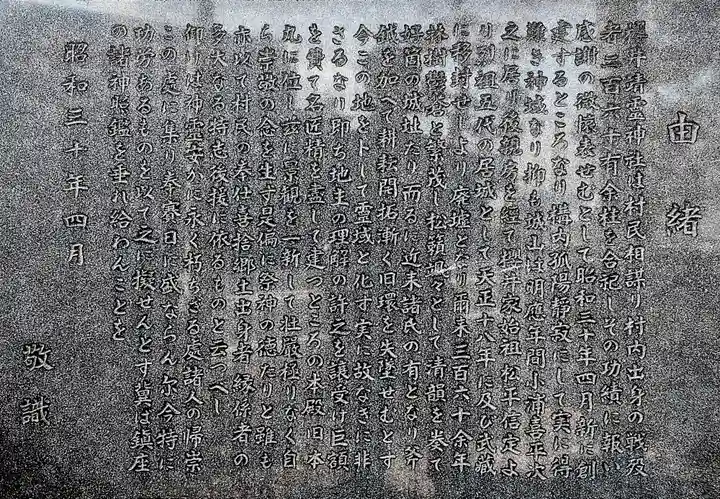 由緒
櫻井靖霊神社は村民相謀り村内出身の戦歿
者三百六十有余柱を合祀しその功績に報い
感謝の微懐表せむとして昭和三十年四月新に創
建するところなり構内孤陽静寂にして実に得
難き神域なり抑も城山は明應年間小浦喜平次
之に居り後親房を經て櫻井家始祖松平信定よ
り列祖五代の居城として天正十八年に及び武藏
に移封せしより廃墟となり爾来三百六十余年
林樹鬱蒼と繁茂し松籟颯々として清韻を奏で
坪箇の城址たり而るに近来諸氏の有となり斧
鉞を加へて耕耘開拓漸く旧環を失墜せむとす
今この地を卜して霊域と化す実に故なきに非
ざるなり即ち地主の理解の許之を譲受け巨額
を費て名匠精を盡して建つところの本殿旧本
丸に位し云に景観を一新して荘厳極りなく自
ら崇敬の念を生す是偏に祭神の徳たりと雖も
亦以て村民の奉仕喜捨郷土出身者縁係者の
多大なる特志後援に依るものと云つべし
仰ければ神霊安かに永く朽ちざる處諸人の帰崇
この処に隼り奉賽日に盛ならん尓今特に
功労あるものを以て之に擬せんとす冀は鎮座
の諸神照鑑を垂れ給わんことを
昭和三十年四月
敬識